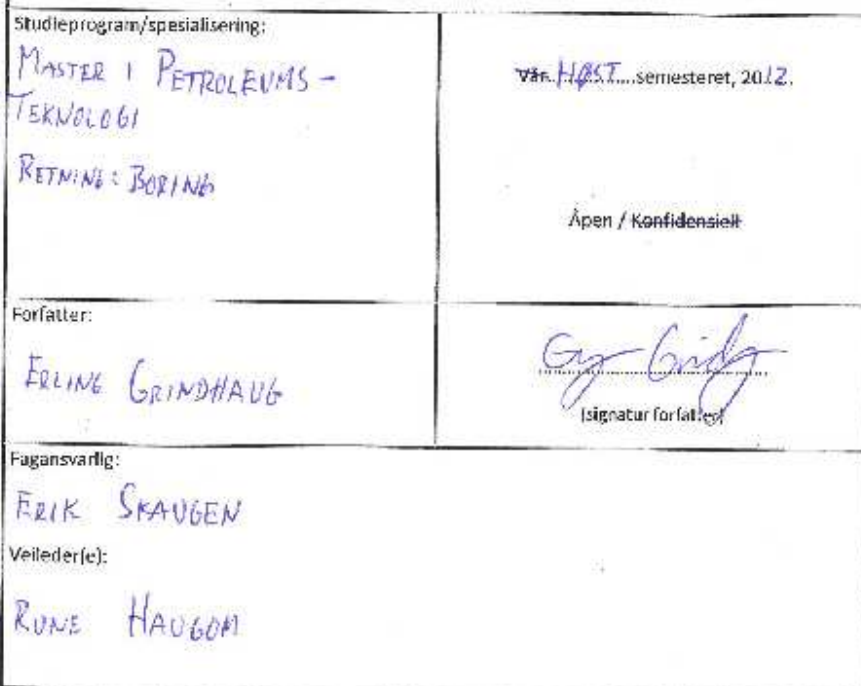 Studieprogram/spesialisering:
MASTER I PETROLEUMS-
TEKNOLOGI
RETNING: BORING
Vår HØST semesteret, 2012.
Åpen / Konfidensielt
Forfatter:
ERLING GRINDHAUG
(signatur forfatter)
Fagansvarlig:
ERIK SKAUGEN
Veileder(e):
RUNE HAUGOM